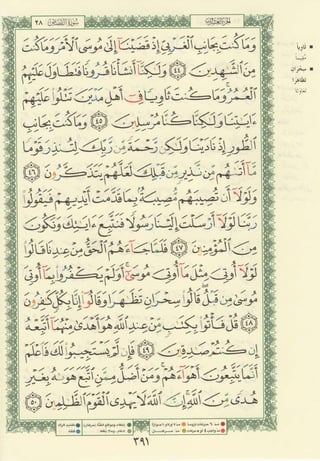 الجزء العشرون
سورة القصص
٢٨
وَمَا كُنتَ بِجَانِبِ ٱلْغَرْبِىِّ إِذْ قَضَيْنَآ إِلَىٰ مُوسَى ٱلْأَمْرَ وَمَا كُنتَ
مِنَ ٱلشَّٰهِدِينَ ٤٤ وَلَٰكِنَّآ أَنشَأْنَا قُرُونًا فَتَطَاوَلَ عَلَيْهِمُ
ٱلْعُمُرُ وَمَا كُنتَ ثَاوِيًا فِىٓ أَهْلِ مَدْيَنَ تَتْلُوا۟ عَلَيْهِمْ
ءَايَٰتِنَا وَلَٰكِنَّا كُنَّا مُرْسِلِينَ ٤٥ وَمَا كُنتَ بِجَانِبِ
ٱلطُّورِ إِذْ نَادَيْنَا وَلَٰكِن رَّحْمَةً مِّن رَّبِّكَ لِتُنذِرَ قَوْمًا
مَّآ أَتَىٰهُم مِّن نَّذِيرٍ مِّن قَبْلِكَ لَعَلَّهُمْ يَتَذَكَّرُونَ ٤٦
وَلَوْلَآ أَن تُصِيبَهُم مُّصِيبَةٌۢ بِمَا قَدَّمَتْ أَيْدِيهِمْ فَيَقُولُوا۟
رَبَّنَا لَوْلَآ أَرْسَلْتَ إِلَيْنَا رَسُولًا فَنَتَّبِعَ ءَايَٰتِكَ وَنَكُونَ
مِنَ ٱلْمُؤْمِنِينَ ٤٧ فَلَمَّا جَآءَهُمُ ٱلْحَقُّ مِنْ عِندِنَا قَالُوا۟
لَوْلَآ أُوتِىَ مِثْلَ مَآ أُوتِىَ مُوسَىٰٓ أَوَلَمْ يَكْفُرُوا۟ بِمَآ أُوتِىَ
مُوسَىٰ مِن قَبْلُ قَالُوا۟ سِحْرَانِ تَظَٰهَرَا وَقَالُوٓا۟ إِنَّا بِكُلٍّ كَٰفِرُونَ
٤٨ قُلْ فَأْتُوا۟ بِكِتَٰبٍ مِّنْ عِندِ ٱللَّهِ هُوَ أَهْدَىٰ مِنْهُمَآ أَتَّبِعْهُ
إِن كُنتُمْ صَٰدِقِينَ ٤٩ فَإِن لَّمْ يَسْتَجِيبُوا۟ لَكَ فَٱعْلَمْ
أَنَّمَا يَتَّبِعُونَ أَهْوَآءَهُمْ وَمَنْ أَضَلُّ مِمَّنِ ٱتَّبَعَ هَوَىٰهُ بِغَيْرِ
هُدًى مِّنَ ٱللَّهِ إِنَّ ٱللَّهَ لَا يَهْدِى ٱلْقَوْمَ ٱلظَّٰلِمِينَ ٥٠
ثاوياً
مقيماً
سحران
تظاهرا
تعاونا
٣٩١